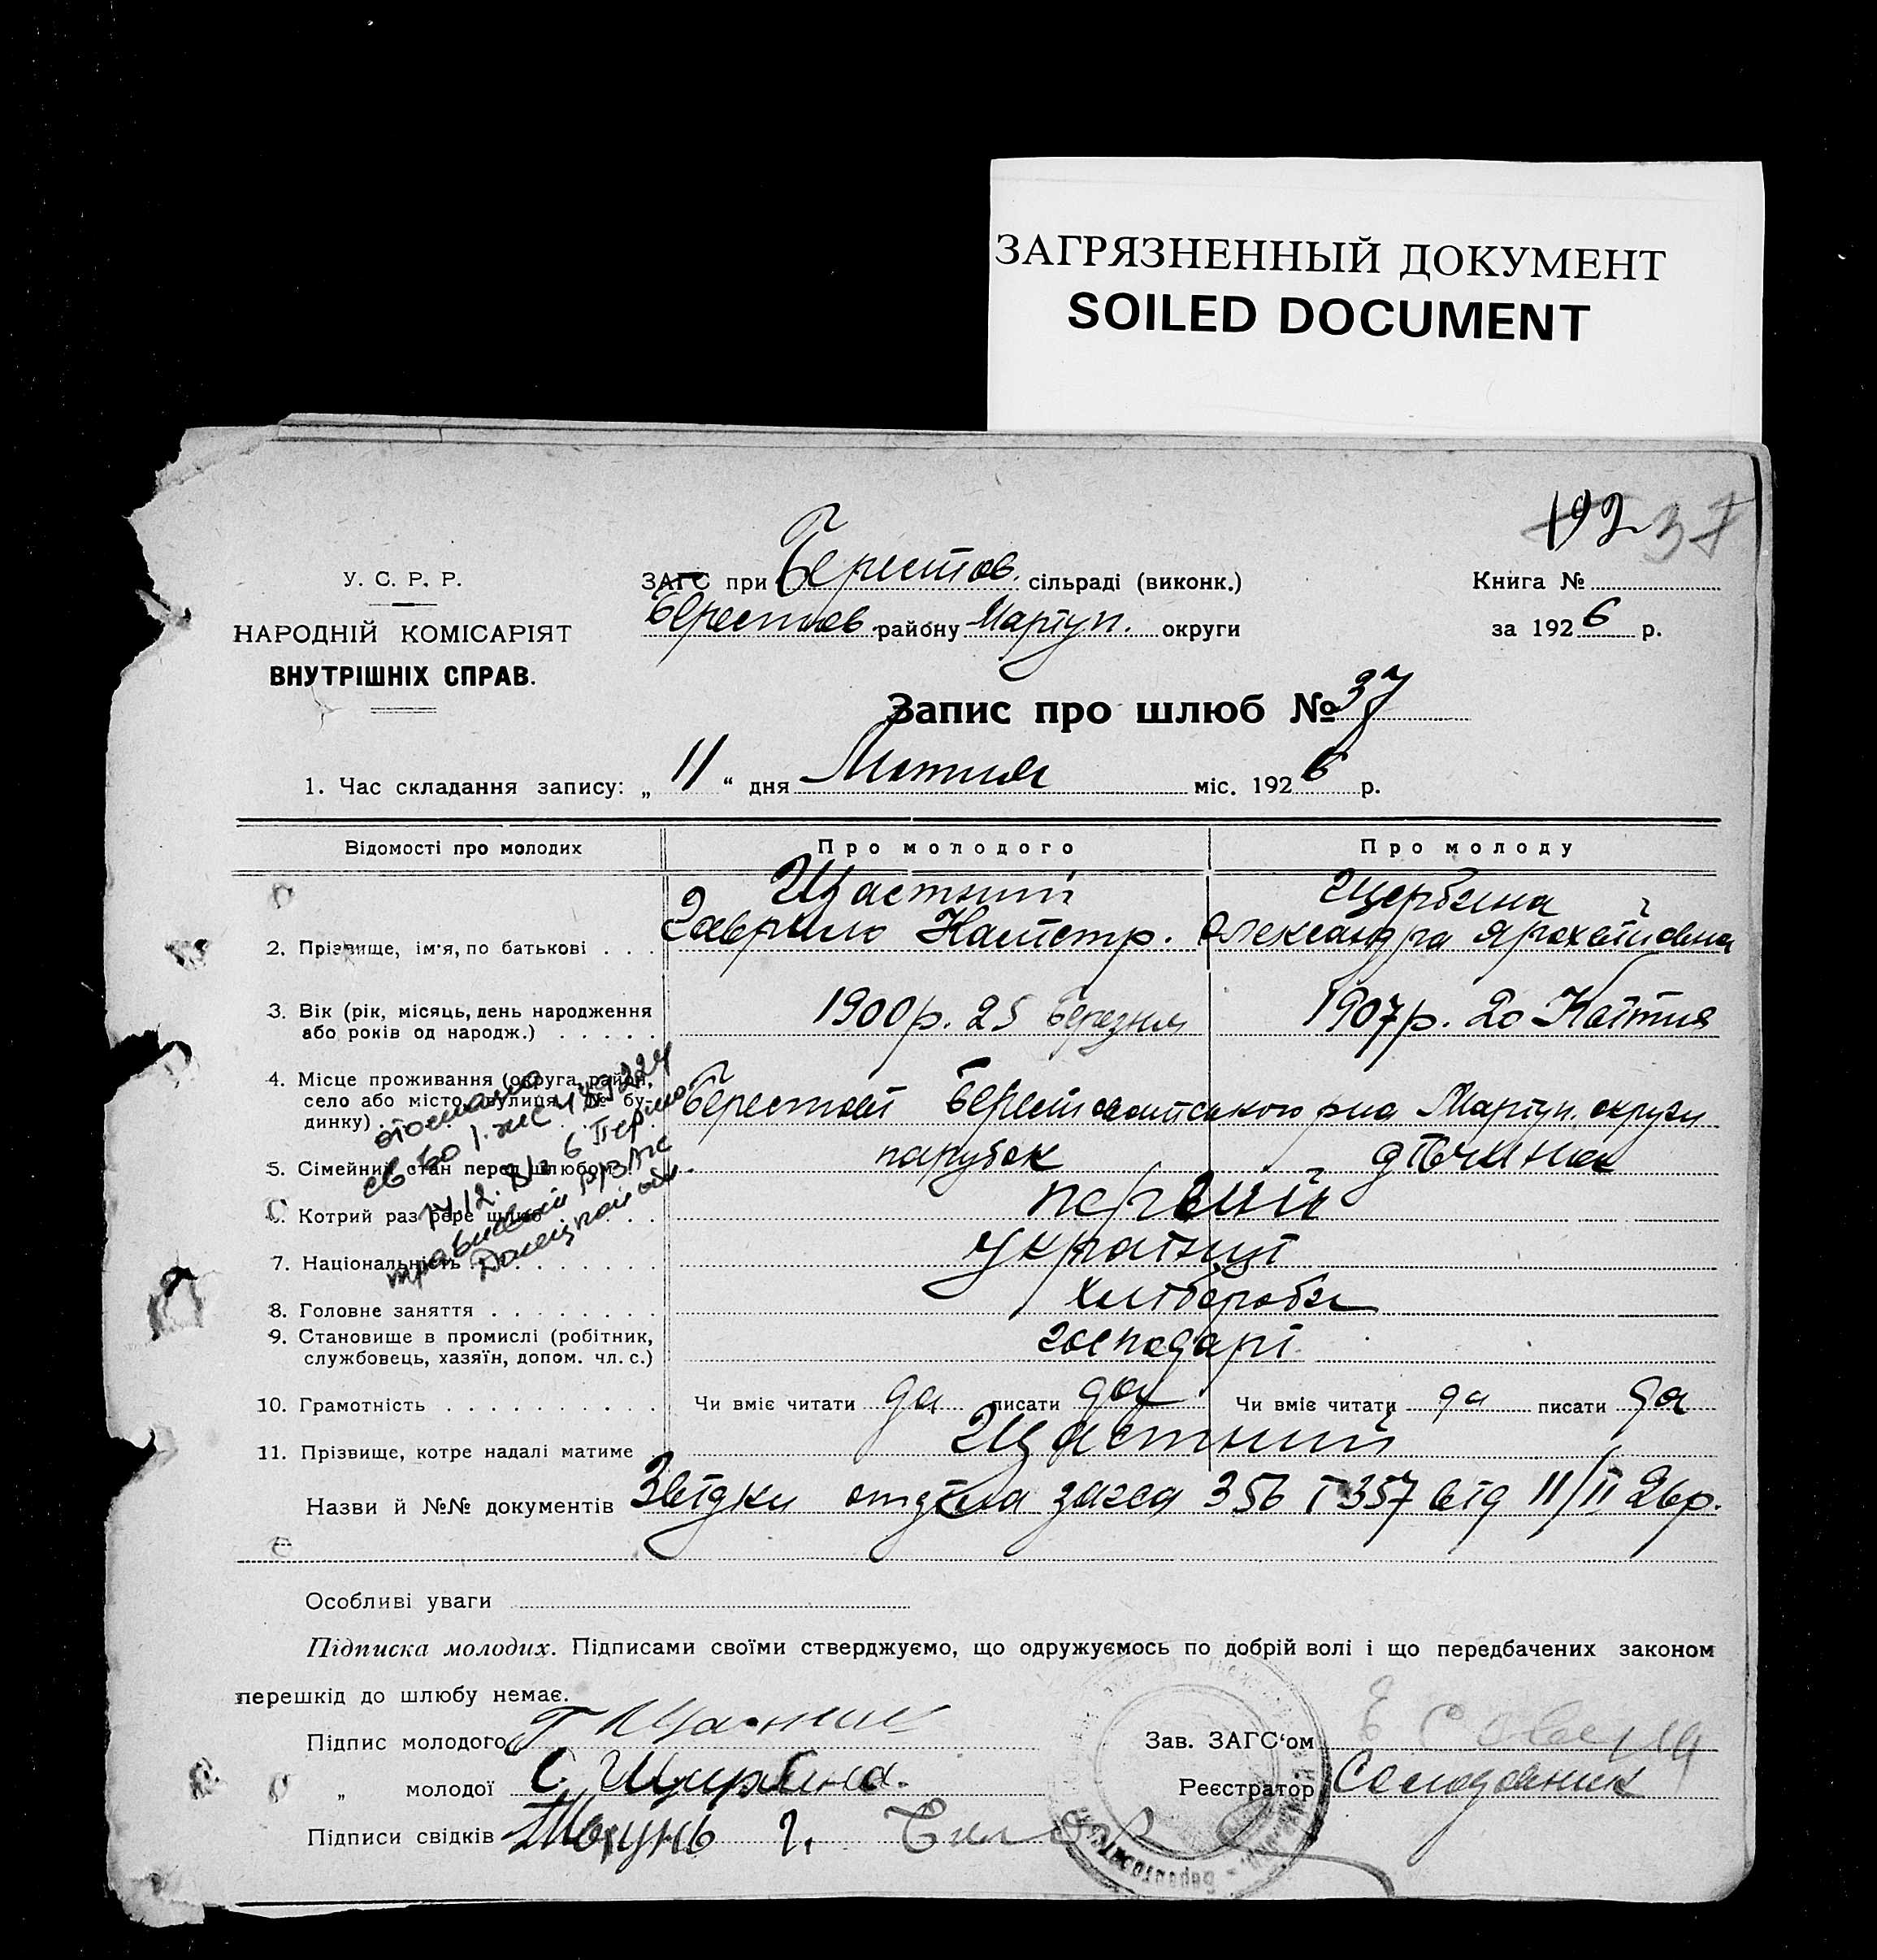 ЗАГРЯЗНЕННЫЙ ДОКУМЕНТ
SOILED DOCUMENT
192 37
У. С. Р. Р.
НАРОДНІЙ КОМІСАРІЯТ
ВНУТРІШНІХ СПРАВ.
ЗАГС при Берестов. сільраді (виконк.)
Берестов. району Маріуп. округи
Книга №
за 1926 р.
Запис про шлюб № 37
1. Час складання запису: „ 11 “ дня Лютия міс. 1926 р.
Відомості про молодих
Про молодого
Про молоду
Щастний
Щербина
2. Прізвище, ім'я, по батькові . . . Гаврило Калістр. Олександра
3. Вік (рік, місяць, день народження
або років од народж.) . . . . . 1900 р. 25 березня 1907 р. 20 Квітня
4. Місце проживання (округа, район,
село або місто, вулиця, № бу-
динку) Берестовой Маріуп. округи
5. Сімейний стан перед шлюбом парубок дівчина
6. Котрий раз бере шлюб первий
7. Національність українці
8. Головне заняття . . . . . . . . хлібороби
9. Становище в промислі (робітник,
службовець, хазяїн, допом. чл. с.) господарі
10. Грамотність . . . . . . . . . . . Чи вміє читати да писати да Чи вміє читати да писати да
11. Прізвище, котре надалі матиме Щастний
Назви й №№ документів Звідки отділа загса 356 і 357 від 11/II 26 р.
Особливі уваги
Підписка молодих. Підписами своїми стверджуємо, що одружуємось по добрій волі і що передбачених законом
перешкід до шлюбу немає.
Підпис молодого Г
Зав. ЗАГС‘ом
„ молодої С. Щербина.
Реєстратор Солодовник
Підписи свідків